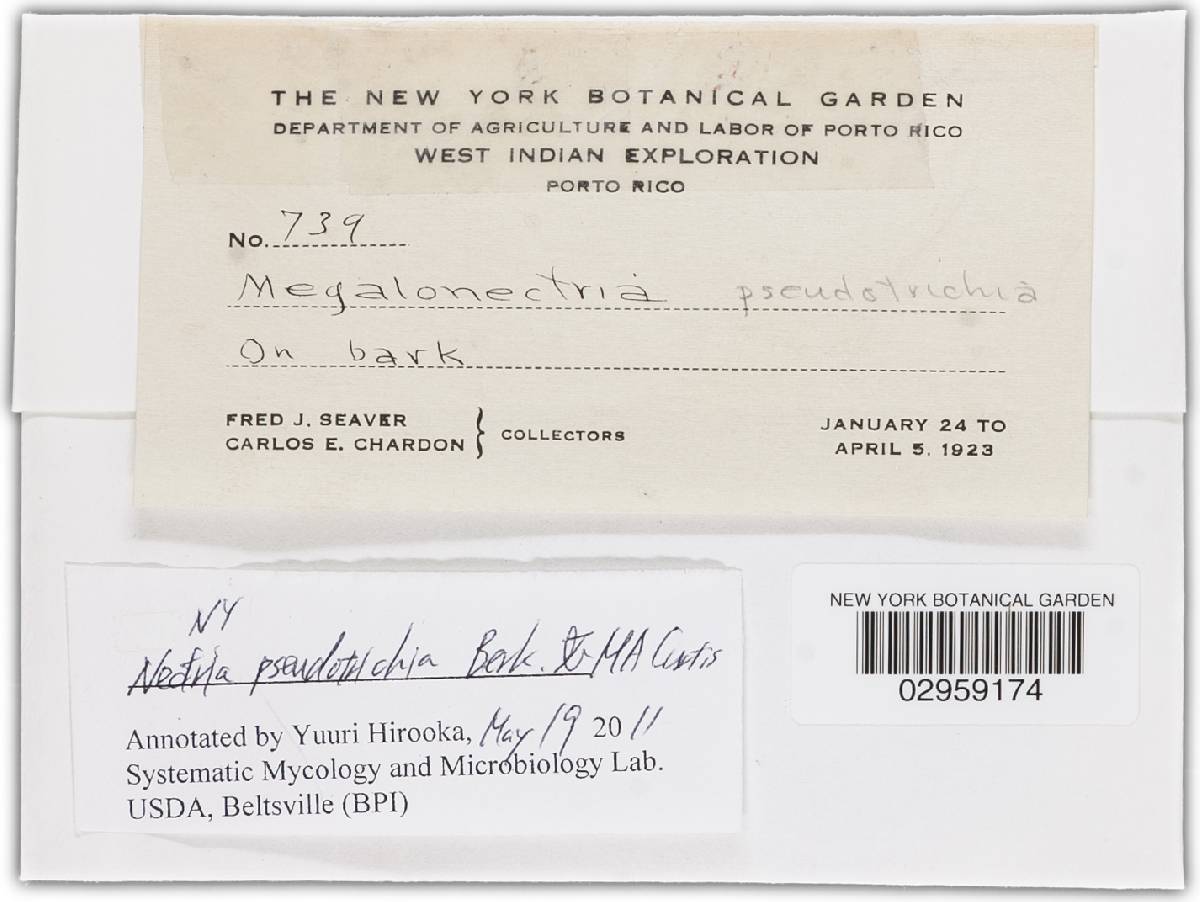 THE NEW YORK BOTANICAL GARDEN
DEPARTMENT OF AGRICULTURE AND LABOR OF PORTO RICO
WEST INDIAN EXPLORATION
PORTO RICO
No. 739
Megalonectria pseudotrichia
On bark
FRED J. SEAVER
CARLOS E. CHARDON } COLLECTORS
JANUARY 24 TO
APRIL 5, 1923
NY
Nectria pseudotrichia Berk. & MA Curtis
Annotated by Yuuri Hirooka, May 19 2011
Systematic Mycology and Microbiology Lab.
USDA, Beltsville (BPI)
NEW YORK BOTANICAL GARDEN
02959174